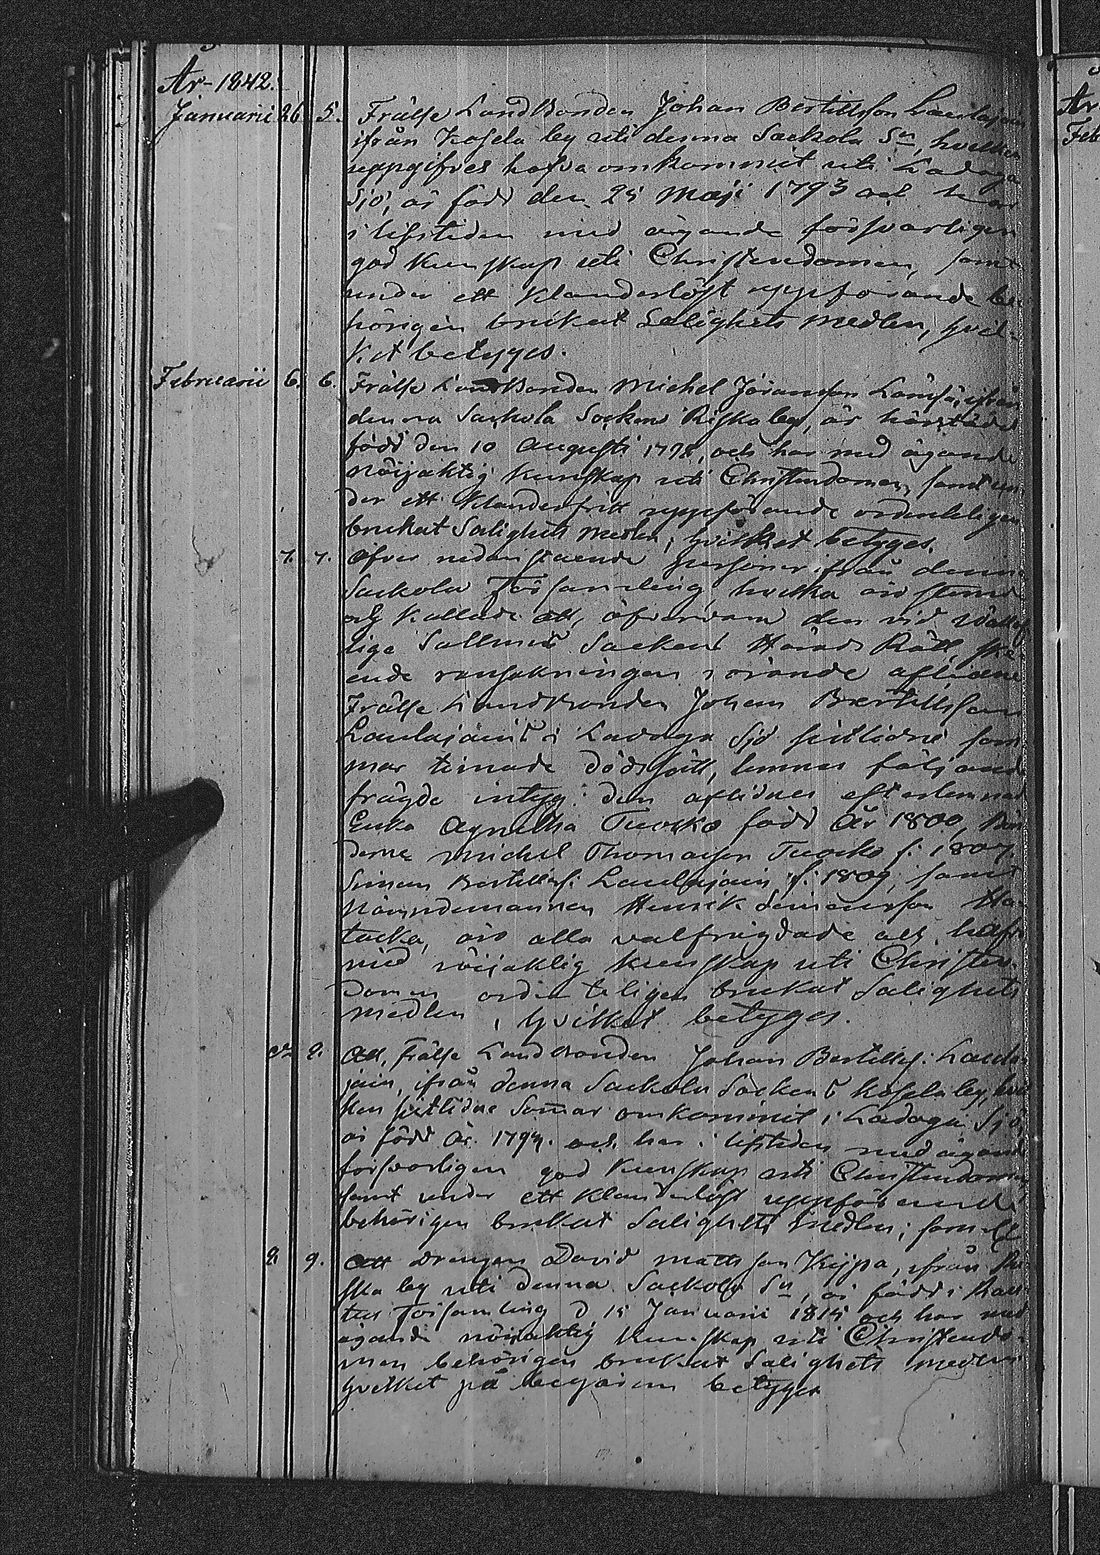 År 1842.
Januarii 26. 5. Frälse Landbonden Johan Bertillsson Laulajain
ifrån Kosela by uti denna Sackola Sn, hvilken
uppgifves hafva omkommit uti Ladoga
Sjö, är född den 25 Maji 1793 och har
i lifstiden med ägande försvarligen
god kunskap uti Christendomen, samt
under ett klanderlöst uppförande be-
hörigen brukat Salighets medlen, hvil-
ket betyges.
Februarii 6. 6. Frälse Landbonden Michel Jöransson ifrån
denna Sackola Socken Riska by, är härstädes
född den 10 Augusti 1778, och har med ägande
nöijaktig kunskap uti Christendomen, samt un-
der ett klanderfritt uppförande ordenteligen
brukat Salighets medlen, hvilket betyges.
7. 7. Öfver nedanstående personer från denna
Sackola Församling hvilka äro stämde
och kallade att, öfvervara den vid
Sockens Härads Rätt ske-
ende ransakningen rörande aflidne
Frälse Landbonden Johan Bertillsson
Laulajains i Ladoga Sjö sistlidne som-
mar timade dödsfall, lemnas följande
frägde intyg: den aflidnes efterlemnade
Enka Agnetha Tuocko född År 1800, Bön
derne Michel Thomasson Tuocko f. 1807.
Simon Bertillss: Laulajain f: 1809, samt
Nämndemannen Henrik Simonsson
äro alla välfrägdade och hafva
med nöijaktig kunskap uti Christen-
domen ordenteligen brukat Salighets
medlen, hvilket betyges.
do 8. Att Frälse Landbonden Johan Bertillss: Laula-
jain, ifrån denna Sackola Sockens Kosela by, hvil
ken sistlidne Somar omkommit i Ladoga Sjö,
är född År 1794. och har i lifstiden med ägande
försvarligen god kunskap uti Christendomen
samt under ett klanderlöst uppförande
behörigen brukat Salighets medlen;
8. 9. Att drengen David Mattsson Kijpa, ifrån Ri-
ska by uti denna Sackola Sn, är född i Rau-
tus Församling d 15 Januarii 1815 och har med
ägande nöijaktig kunskap uti Christendo-
men behörigen brukat Salighets medlen
hvilket på begäran betyges